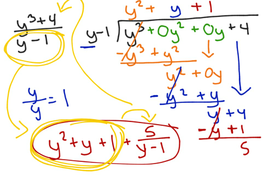 y³+4
y-1
y² + y + 1
y-1 y³ + 0y² + 0y + 4
-y³ + y²
y² + 0y
-y² + y
y + 4
-y + 1
5
y/y = 1
y² + y + 1 + 5/y-1